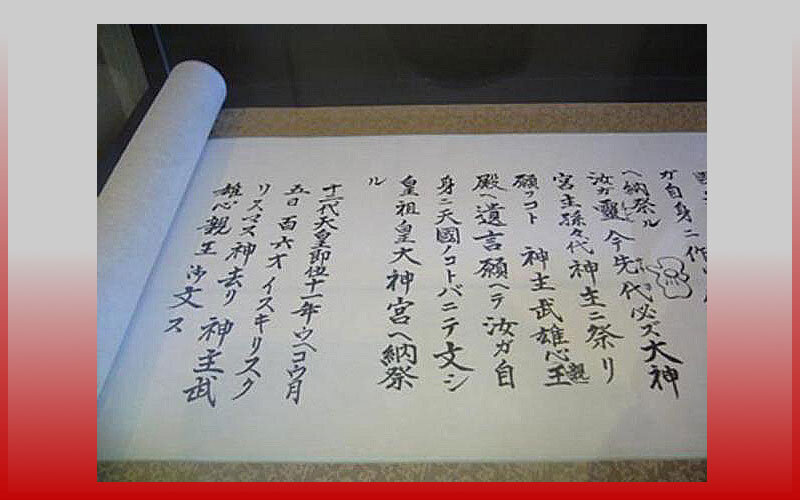 ガ自身ニ作
ヘ納祭ル
汝ガ靈今先代必ズ大神
宮主孫々代神主ニ祭リ
願フコト 神主武雄心親王
殿ヘ遺言願ヘテ汝ガ自
身ニ天國ノコトバニテ文シ
皇祖皇大神宮ヘ納祭
ル
十二代天皇即位十一年ウヘコウ月
五日 百六才 イスキリスク
リスマス神去リ 神主武
雄心親王 文ス